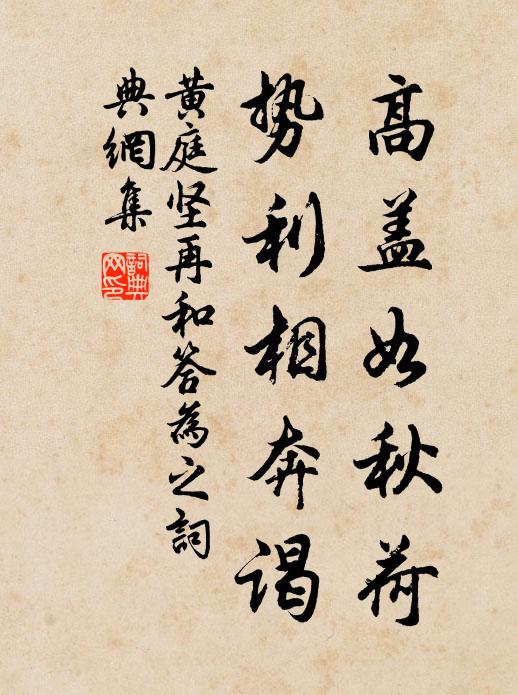 高盖如秋荷
势利相奔谒
黄庭坚再和答為之詞
典網集
詞典網印